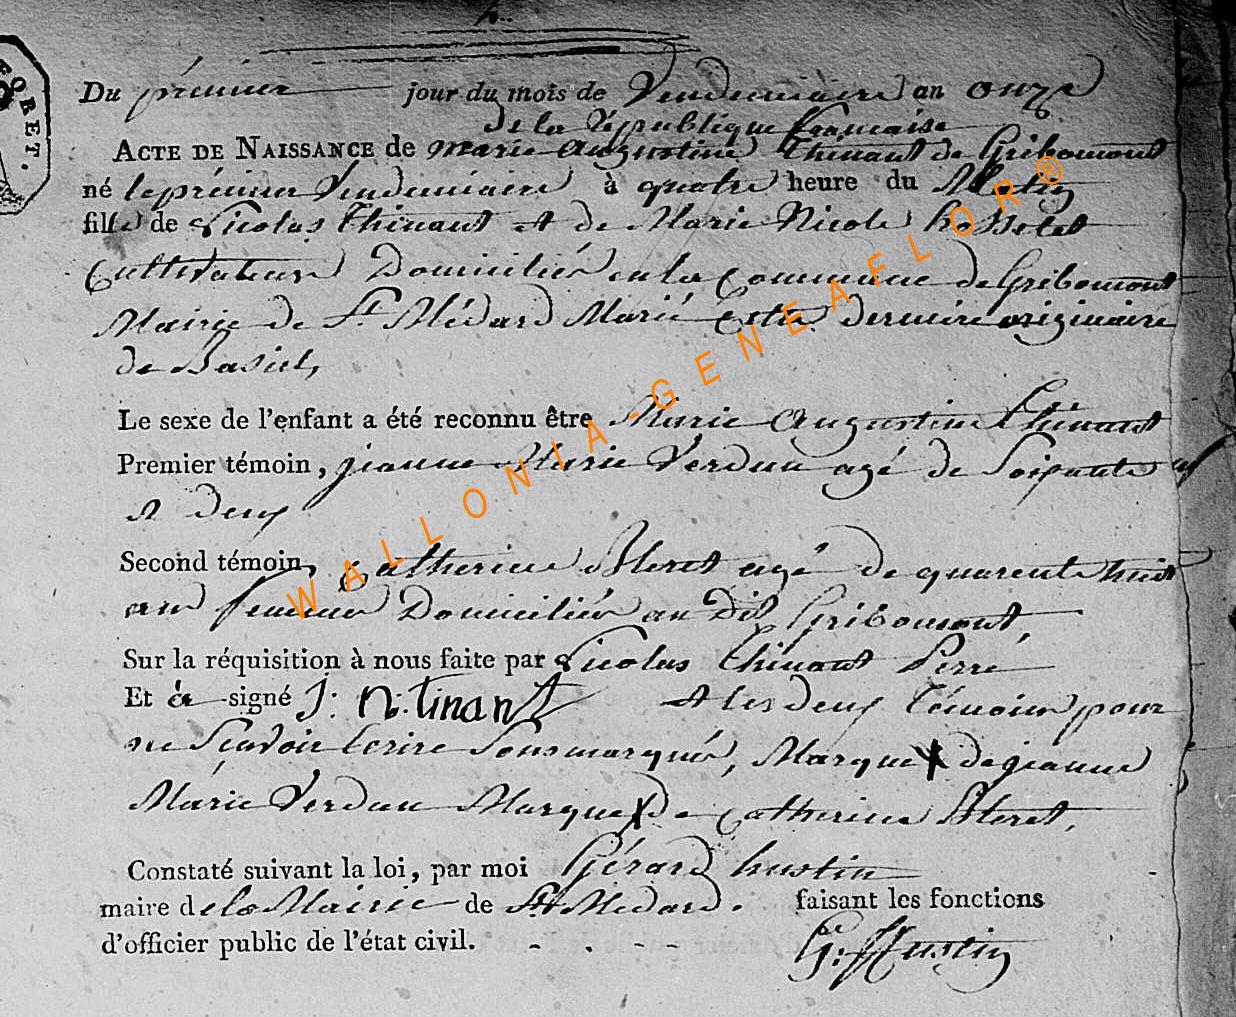 Du prémier jour du mois de Vendemiaire an onze
de la République francaise
ACTE DE NAISSANCE de marie augustine Thinant de Gribomont
né le prémier Vendemiaire à quatre heure du Matin
fille de Nicolas Thinant et de Marie Nicole
Cultivateur Domiciliés en la Commune de Gribomont
Mairie de St Médard Marié Cette derniére originaire
de
Le sexe de l'enfant a été reconnu être Marie augustine thinant
Premier témoin, jeanne Marie Verdun agé de Soixante
et deux
Second témoin, Catherine agé de quarente huit
an femme Domiciliés au Dit Gribomont,
Sur la réquisition à nous faite par Nicolas thinant Perre
Et à signé J: n: tinant et les deux Témoin pour
ne Scavoir Ecrire Sousmarqués, Marque X de jeanne
Marie Verdun Marque X de Catherine
Constaté suivant la loi, par moi Gérard hustin
maire de la Mairie de St Médard. faisant les fonctions
d'officier public de l'état civil. - . - -
G: Hustin
ORET.
WALLONIA-GENEAFLOR®